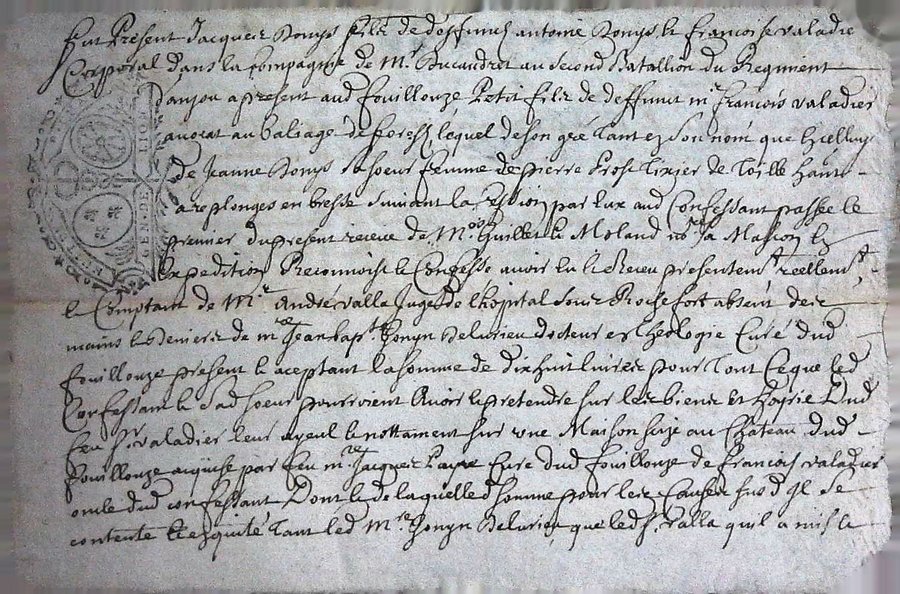 Fut Présent Jacques Bonys fils de deffunct antoine Bonys & francoise valadie
Corporal dans la compagnie de Mr Ducaudret au second Batallion du Regiment
danjou a present aud fouillouze Petit fils de deffunct mr francois valadier
auocat au baliage de forest lequel de son gré tant en son nom que
de Jeanne Bonys sa soeur femme de pierre tixier de toille hant
a replonges en bresse suiuant la par eux aud Confessant passée le
premier du present receue de Guillet & Moland
Expedition Reconnoist & Confesse auoir eu & Receu presentemt réellemt
& Comptant de Mre André valla Juge de lhopital souz Rochefort absent des
mains & deniers de mre Jean bapt. Bonyn docteur en theologie Curé dud
fouillouze present & aceptant la somme de dix huit liures pour tout Ce que led
Confessant & sad soeur pourroient Auoir & pretendre sur les biens & hoyrie Dud
feu Sr valadier leur ayeul & nottament sur vne Maison size au Chateau dud
fouillouze aquise par feu mre Jacques Curé dud fouillouze de francois valadier
oncle dud confessant Dont & de laquelle d somme pour les Causes susd Il se
contente & en quite tant led Mre Bonyn que led Sr valla quil a mis &
GEN. DE LION